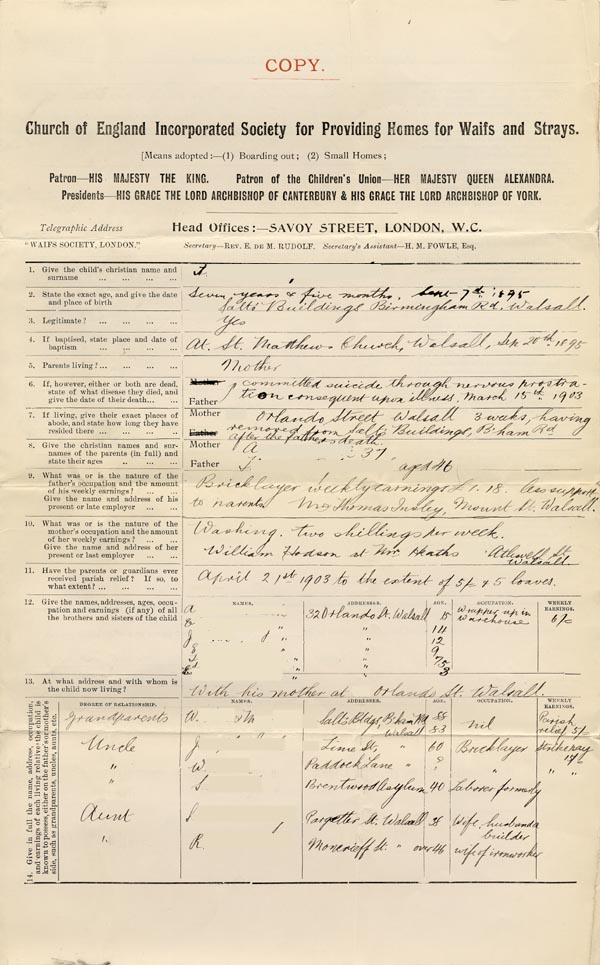 COPY.
Church of England Incorporated Society for Providing Homes for Waifs and Strays.
[Means adopted:—(1) Boarding out; (2) Small Homes;
Patron—HIS MAJESTY THE KING. Patron of the Children's Union—HER MAJESTY QUEEN ALEXANDRA.
Presidents—HIS GRACE THE LORD ARCHBISHOP OF CANTERBURY & HIS GRACE THE LORD ARCHBISHOP OF YORK.
Telegraphic Address Head Offices:—SAVOY STREET, LONDON, W.C.
"WAIFS SOCIETY, LONDON." Secretary—REV. E. DE M. RUDOLF. Secretary's Assistant—H. M. FOWLE, Esq.
1. Give the child's christian name and
surname ... ... ... ...
2. State the exact age, and give the date Seven years & five months, 7th 1895
and place of birth Salts Buildings Birmingham Rd, Walsall.
3. Legitimate? ... ... ... ... Yes
4. If baptised, state place and date of At St. Matthew's Church, Walsall, Sep 20th 1895
baptism ... ... ... ...
5. Parents living? ... ... ... Mother
6. If, however, either or both are dead, Mother committed suicide through nervous prostra-
state of what disease they died, and Father tion consequent upon illness, March 15th 1903
give the date of their death... ...
7. If living, give their exact places of Mother Orlando Street Walsall 3 weeks, having
abode, and state how long they have Father removed from Salts Buildings, B'ham Rd
resided there ... ... ... after the father's death
8. Give the christian names and sur- Mother A 37
names of the parents (in full) and Father aged 46
state their ages ... ... ...
9. What was or is the nature of the Bricklayer weekly earnings £1. 18. less support
father's occupation and the amount
of his weekly earnings? ... ...
Give the name and address of his to parents. Thomas Insley, Mount St. Walsall.
present or late employer ...
10. What was or is the nature of the Washing. two shillings per week.
mother's occupation and the amount
of her weekly earnings? ... ...
Give the name and address of her William Hodson at Mr Heaths St. Walsall.
present or last employer ...
11. Have the parents or guardians ever April 21st 1903 to the extent of 5/- & 5 loaves.
received parish relief? If so, to
what extent? ... ... ...
12. Give the names, addresses, ages, occu- NAMES. ADDRESSES. AGE. OCCUPATION. WEEKLY EARNINGS.
pation and earnings (if any) of all A 32 Orlando St. Walsall 15 Wrapper up in warehouse 6/-
the brothers and sisters of the child
" 14
" 12
" 9
"
" 3
13. At what address and with whom is With his mother at Orlando St. Walsall.
the child now living? ...
14. Give in full the name, address, occupation, and earnings of each living relative the child is known to possess, either on the father's or mother's side, such as grandparents, uncles, aunts, etc.
DEGREE OF RELATIONSHIP. NAMES. ADDRESSES. AGE. OCCUPATION. WEEKLY EARNINGS.
Grandparents W. Salts Bldgs, B'ham Rd Walsall 88 83 nil Parish relief 5/-
Uncle J. Lime St, " 60 Bricklayer Strike pay
" W. Paddock Lane " ? " "
" S Brentwood Asylum 40 Laborer formerly
Aunt S Pargetter St. Walsall 38 Wife, husband a builder
" R. Moncrieff St. " over 46 wife of ironworker